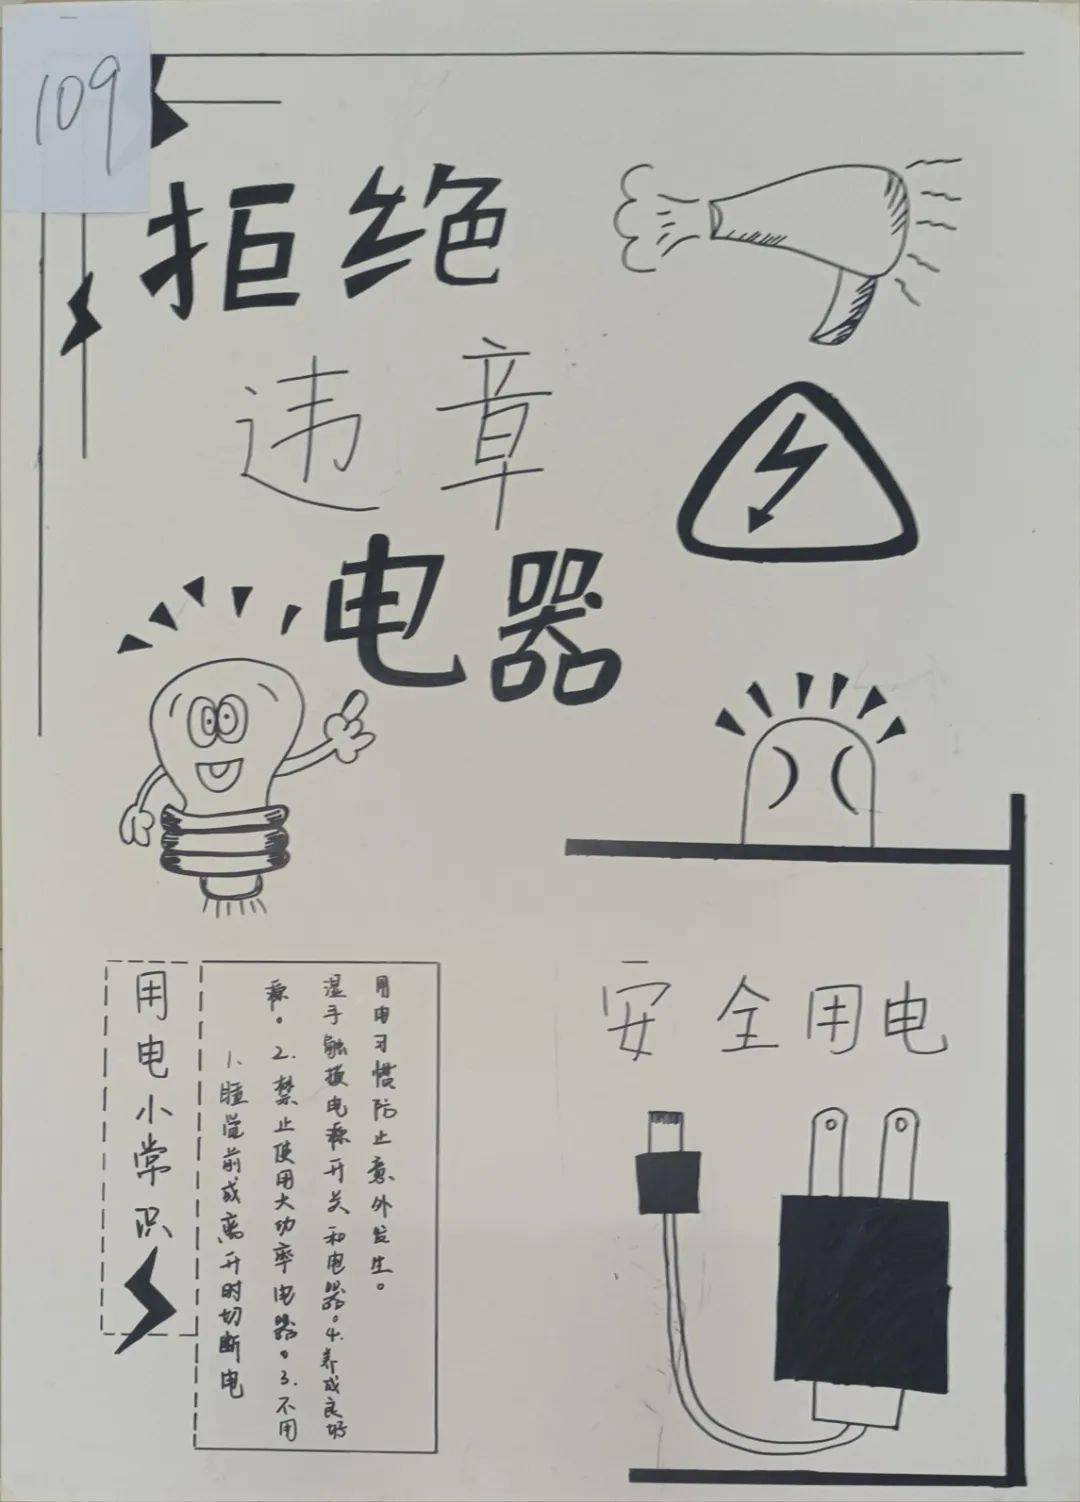 109
拒绝
违章
电器
安全用电
用电小常识
1、睡觉前或离开时切断电
源。2.禁止使用大功率电器。3.不用
湿手触摸电源开关和电器。4.养成良好
用电习惯防止意外发生。